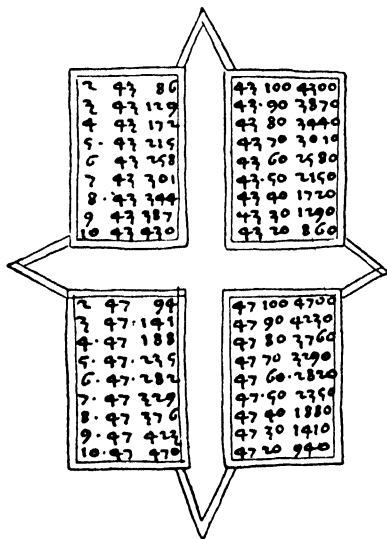 2 43 86
3 43 129
4 43 172
5· 43 215
6 43 258
7 43 301
8· 43 344
9 43 387
10 43 430
43 100 4300
43·90 3870
43 80 3440
43 70 3010
43 60 2580
43·50 2150
43 40 1720
43 30 1290
43 20 860
2 47 94
3 47·141
4·47 188
5·47·235
6·47·282
7·47·329
8·47 376
9·47 423
10·47 470
47 100 4700
47 90 4230
47 80 3760
47 70 3290
47 60·2820
47·50 2350
47 40 1880
47 30 1410
47 20 940